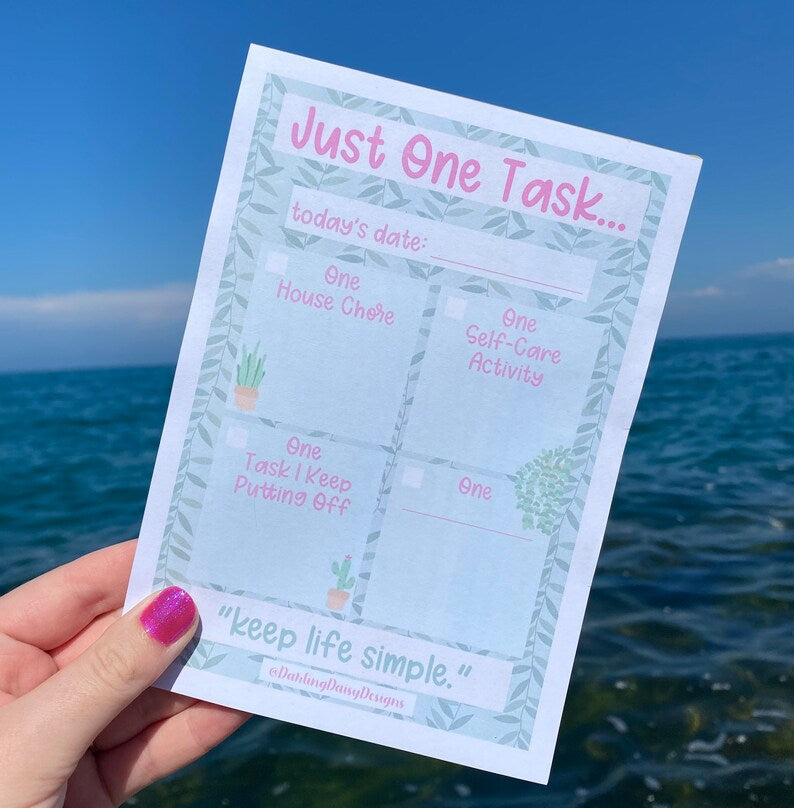 Just One Task...
today's date:
One
House Chore
One
Self-Care
Activity
One
Task I Keep
Putting Off
One
"keep life simple."
@DahlingDaisyDesigns